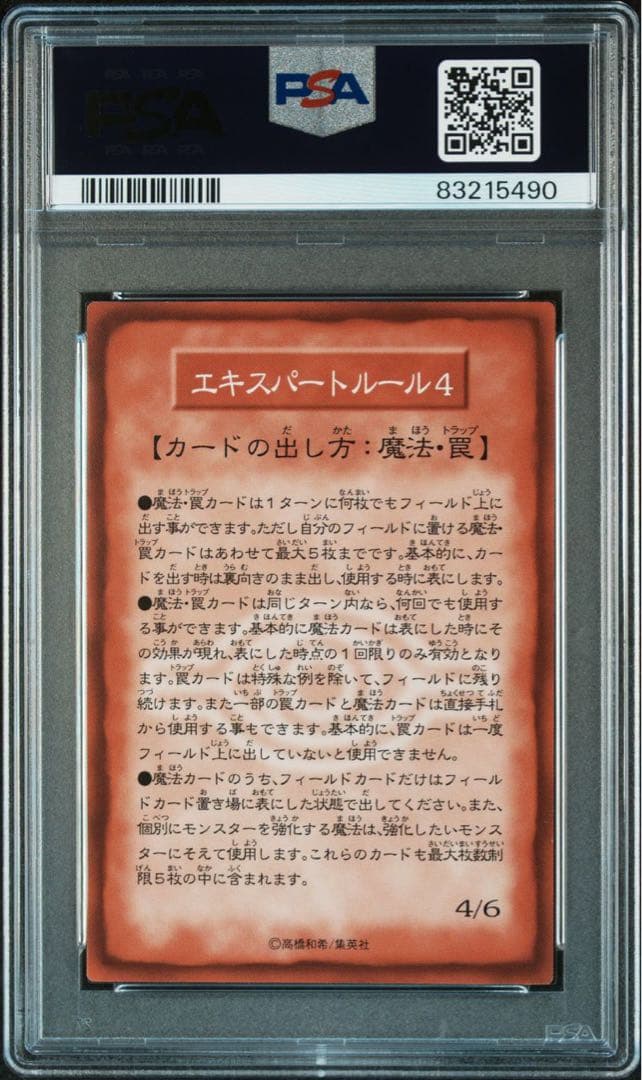 PSA
83215490
エキスパートルール4
【カードの出し方：魔法・罠】
●魔法・罠カードは1ターンに何枚でもフィールド上に
出す事ができます。ただし自分のフィールドに置ける魔法・
罠カードはあわせて最大5枚までです。基本的に、カー
ドを出す時は裏向きのまま出し、使用する時に表にします。
●魔法・罠カードは同じターン内なら、何回でも使用す
る事ができます。基本的に魔法カードは表にした時にそ
の効果が現れ、表にした時点の1回限りのみ有効となりま
す。罠カードは特殊な例を除いて、フィールドに残り
続けます。また一部の罠カードと魔法カードは直接手札
から使用する事もできます。基本的に、罠カードは一度
フィールド上に出していないと使用できません。
●魔法カードのうち、フィールドカードだけはフィール
ドカード置き場に表にした状態で出してください。また、
個別にモンスターを強化する魔法は、強化したいモンス
ターにそえて使用します。これらのカードも最大枚数制
限5枚の中に含まれます。
4/6
©高橋和希/集英社
PSA